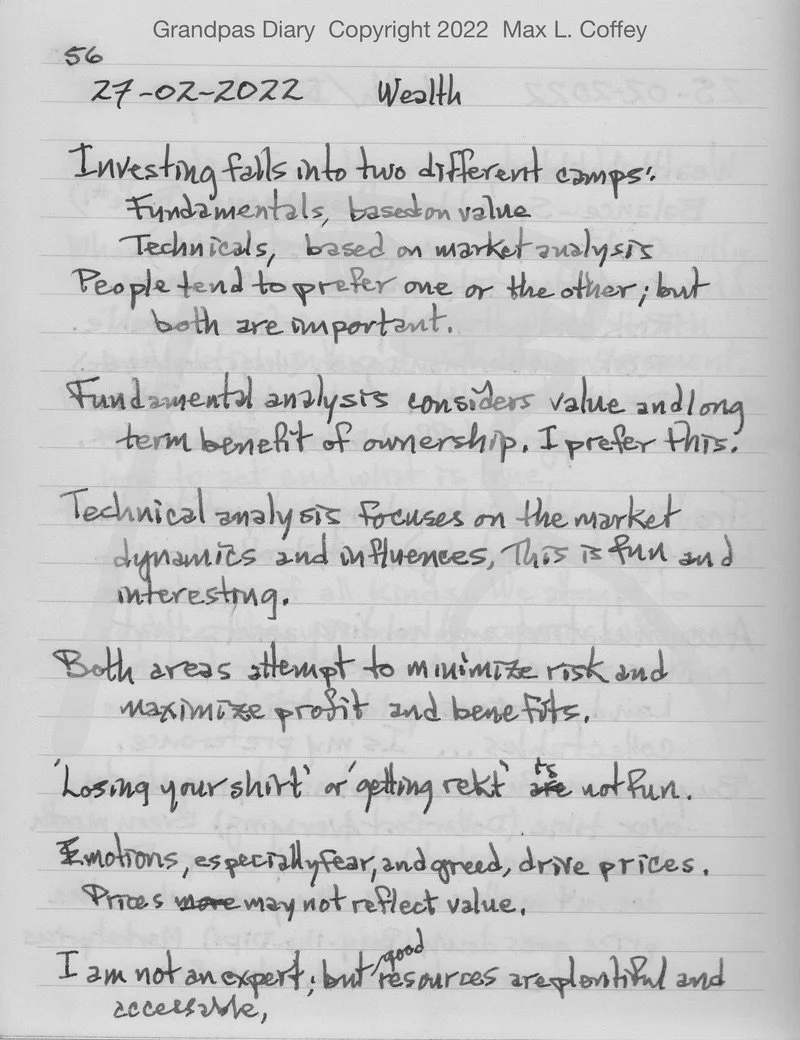 Grandpas Diary Copyright 2022 Max L. Coffey
56
27-02-2022 Wealth
Investing falls into two different camps:
Fundamentals, based on value
Technicals, based on market analysis
People tend to prefer one or the other; but
both are important.
Fundamental analysis considers value and long
term benefit of ownership. I prefer this.
Technical analysis focuses on the market
dynamics and influences, This is fun and
interesting.
Both areas attempt to minimize risk and
maximize profit and benefits.
'Losing your shirt' or 'getting rekt' is are not fun.
Emotions, especially fear, and greed, drive prices.
Prices more may not reflect value.
I am not an expert; but good resources are plentiful and
accessable,